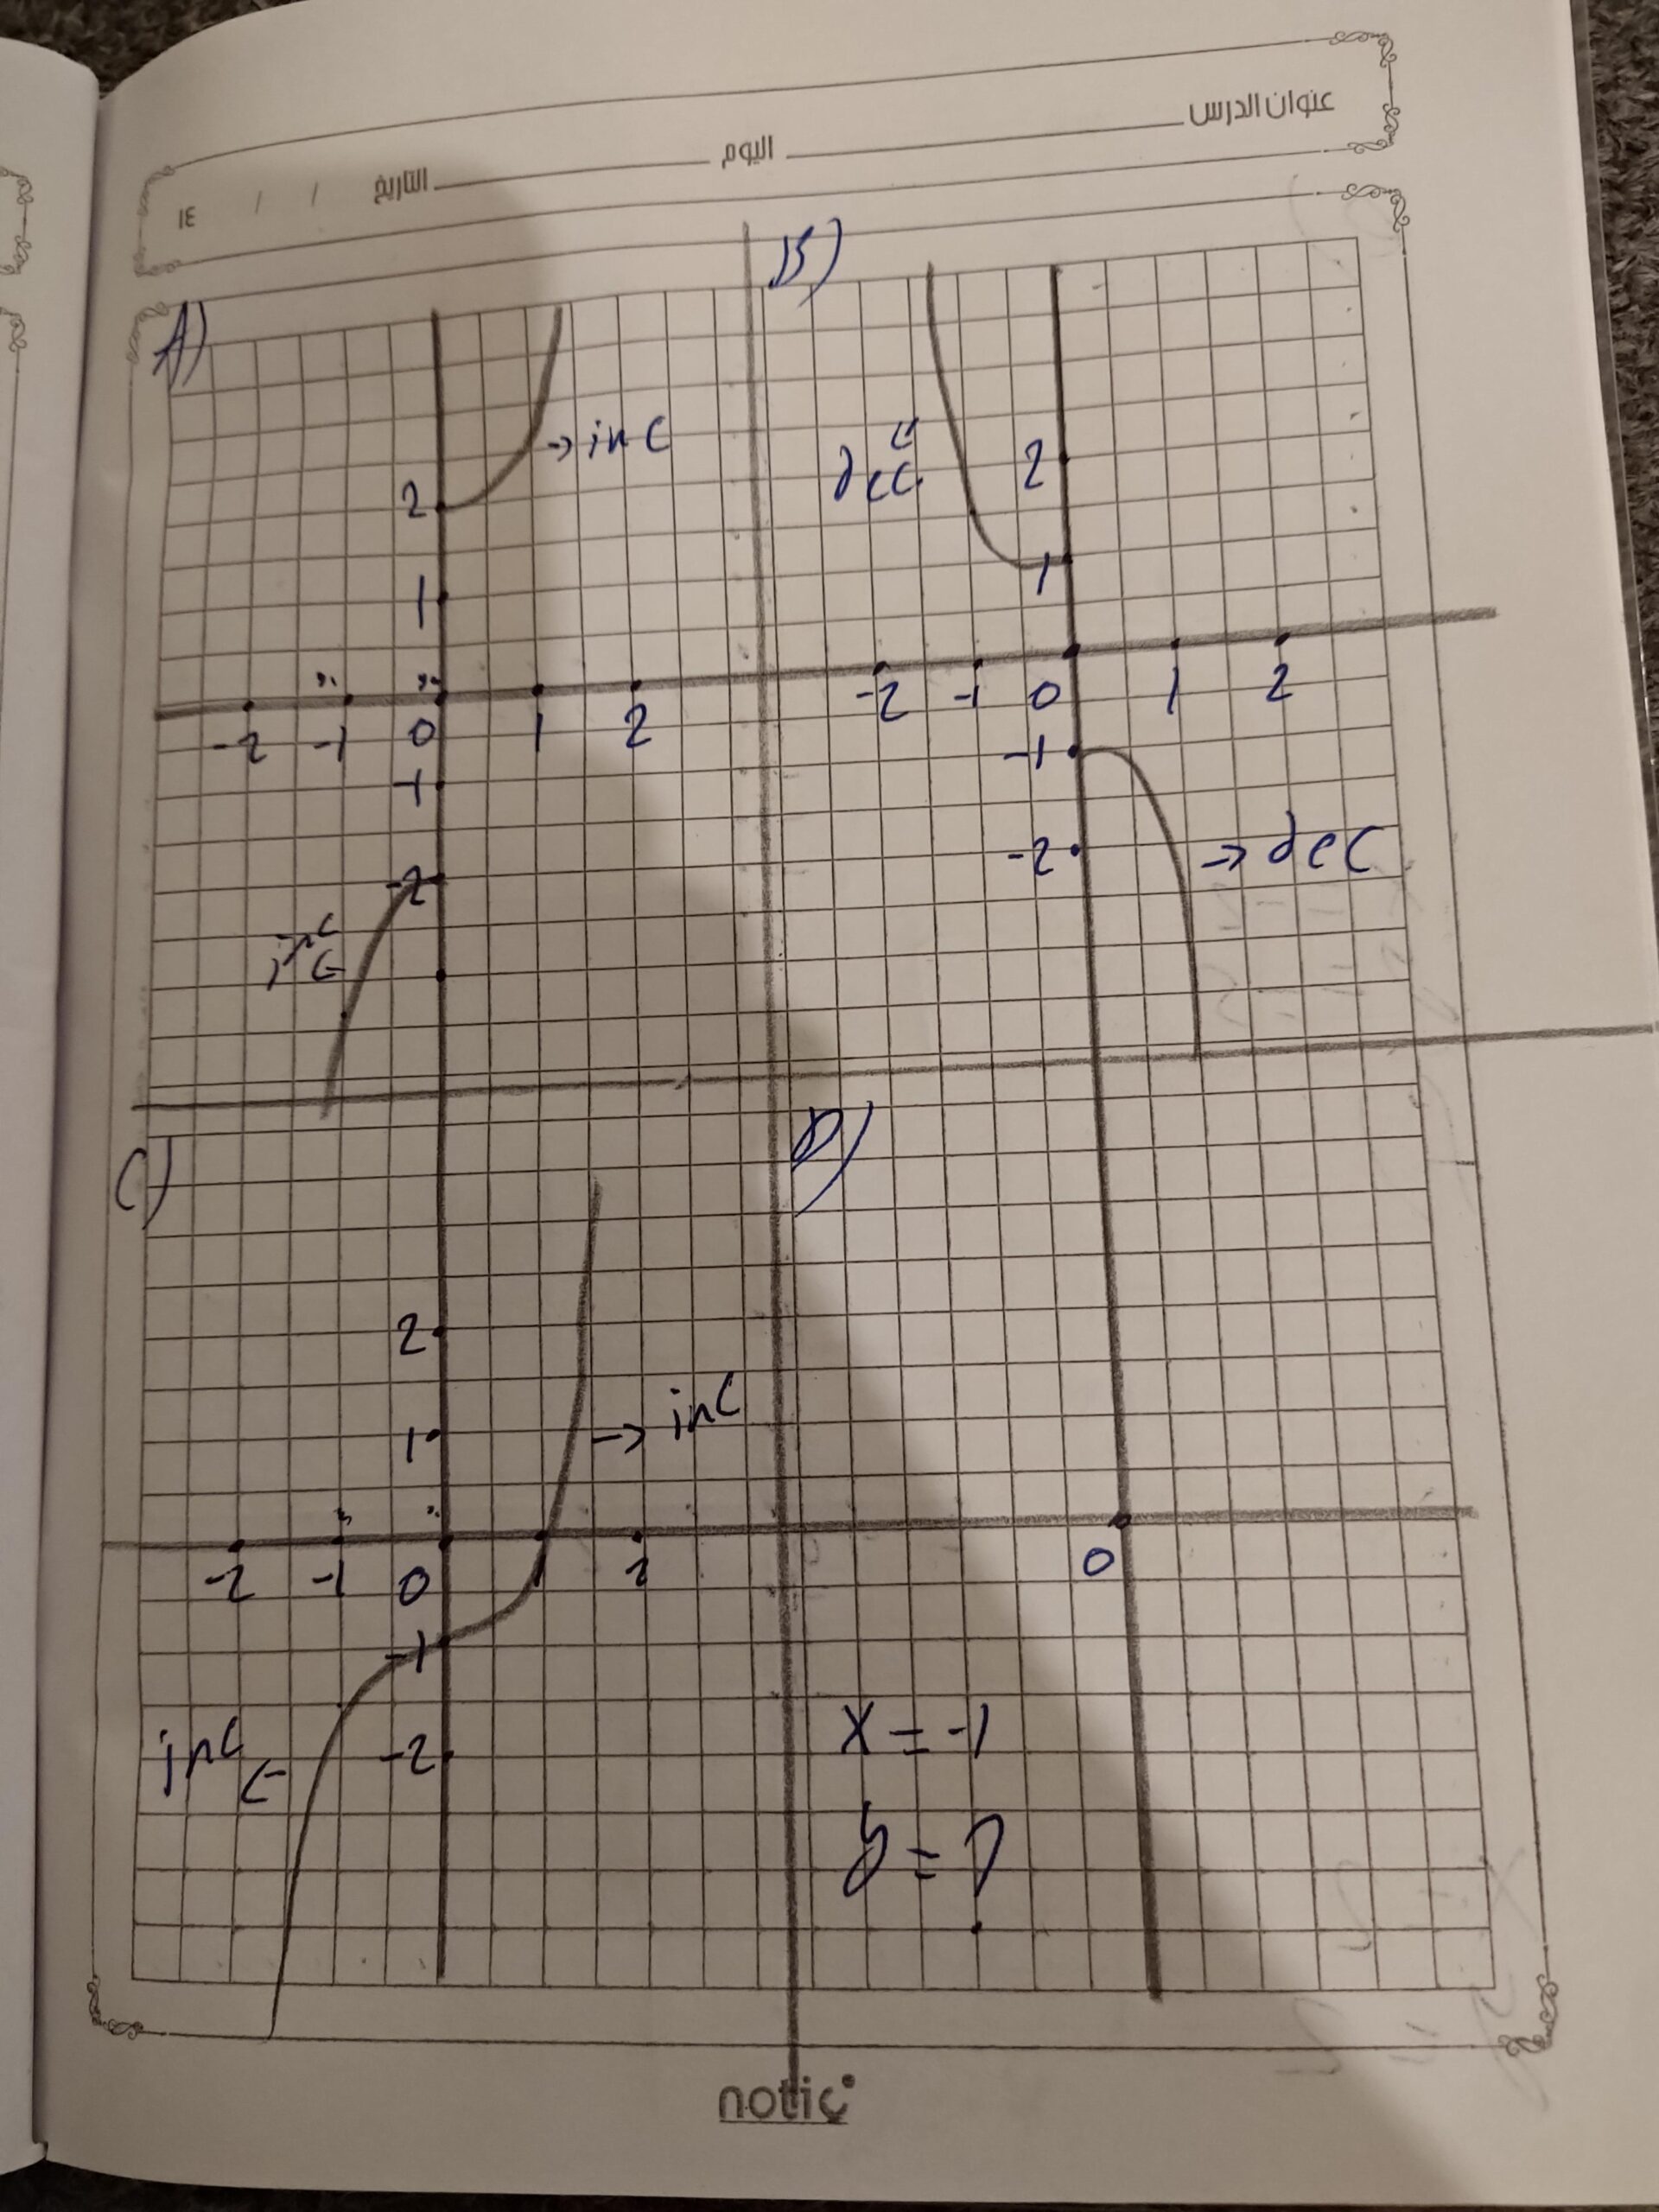 عنوان الدرس
اليوم
التاريخ / / ١٤
A)
B)
2
→ inc
1
-2 -1 0 1 2
-1
-2
inc
dec
2
1
-2 -1 0 1 2
-1
-2
→ dec
C)
2
1
→ inc
-2 -1 0 1 2
-1
-2
inc ←
D)
0
x = -1
y = ?
notic